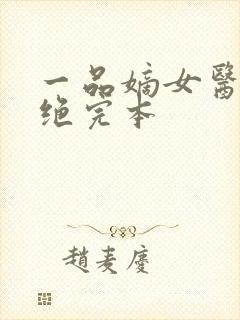 一品嫡女醫
绝完本
趙麦慶